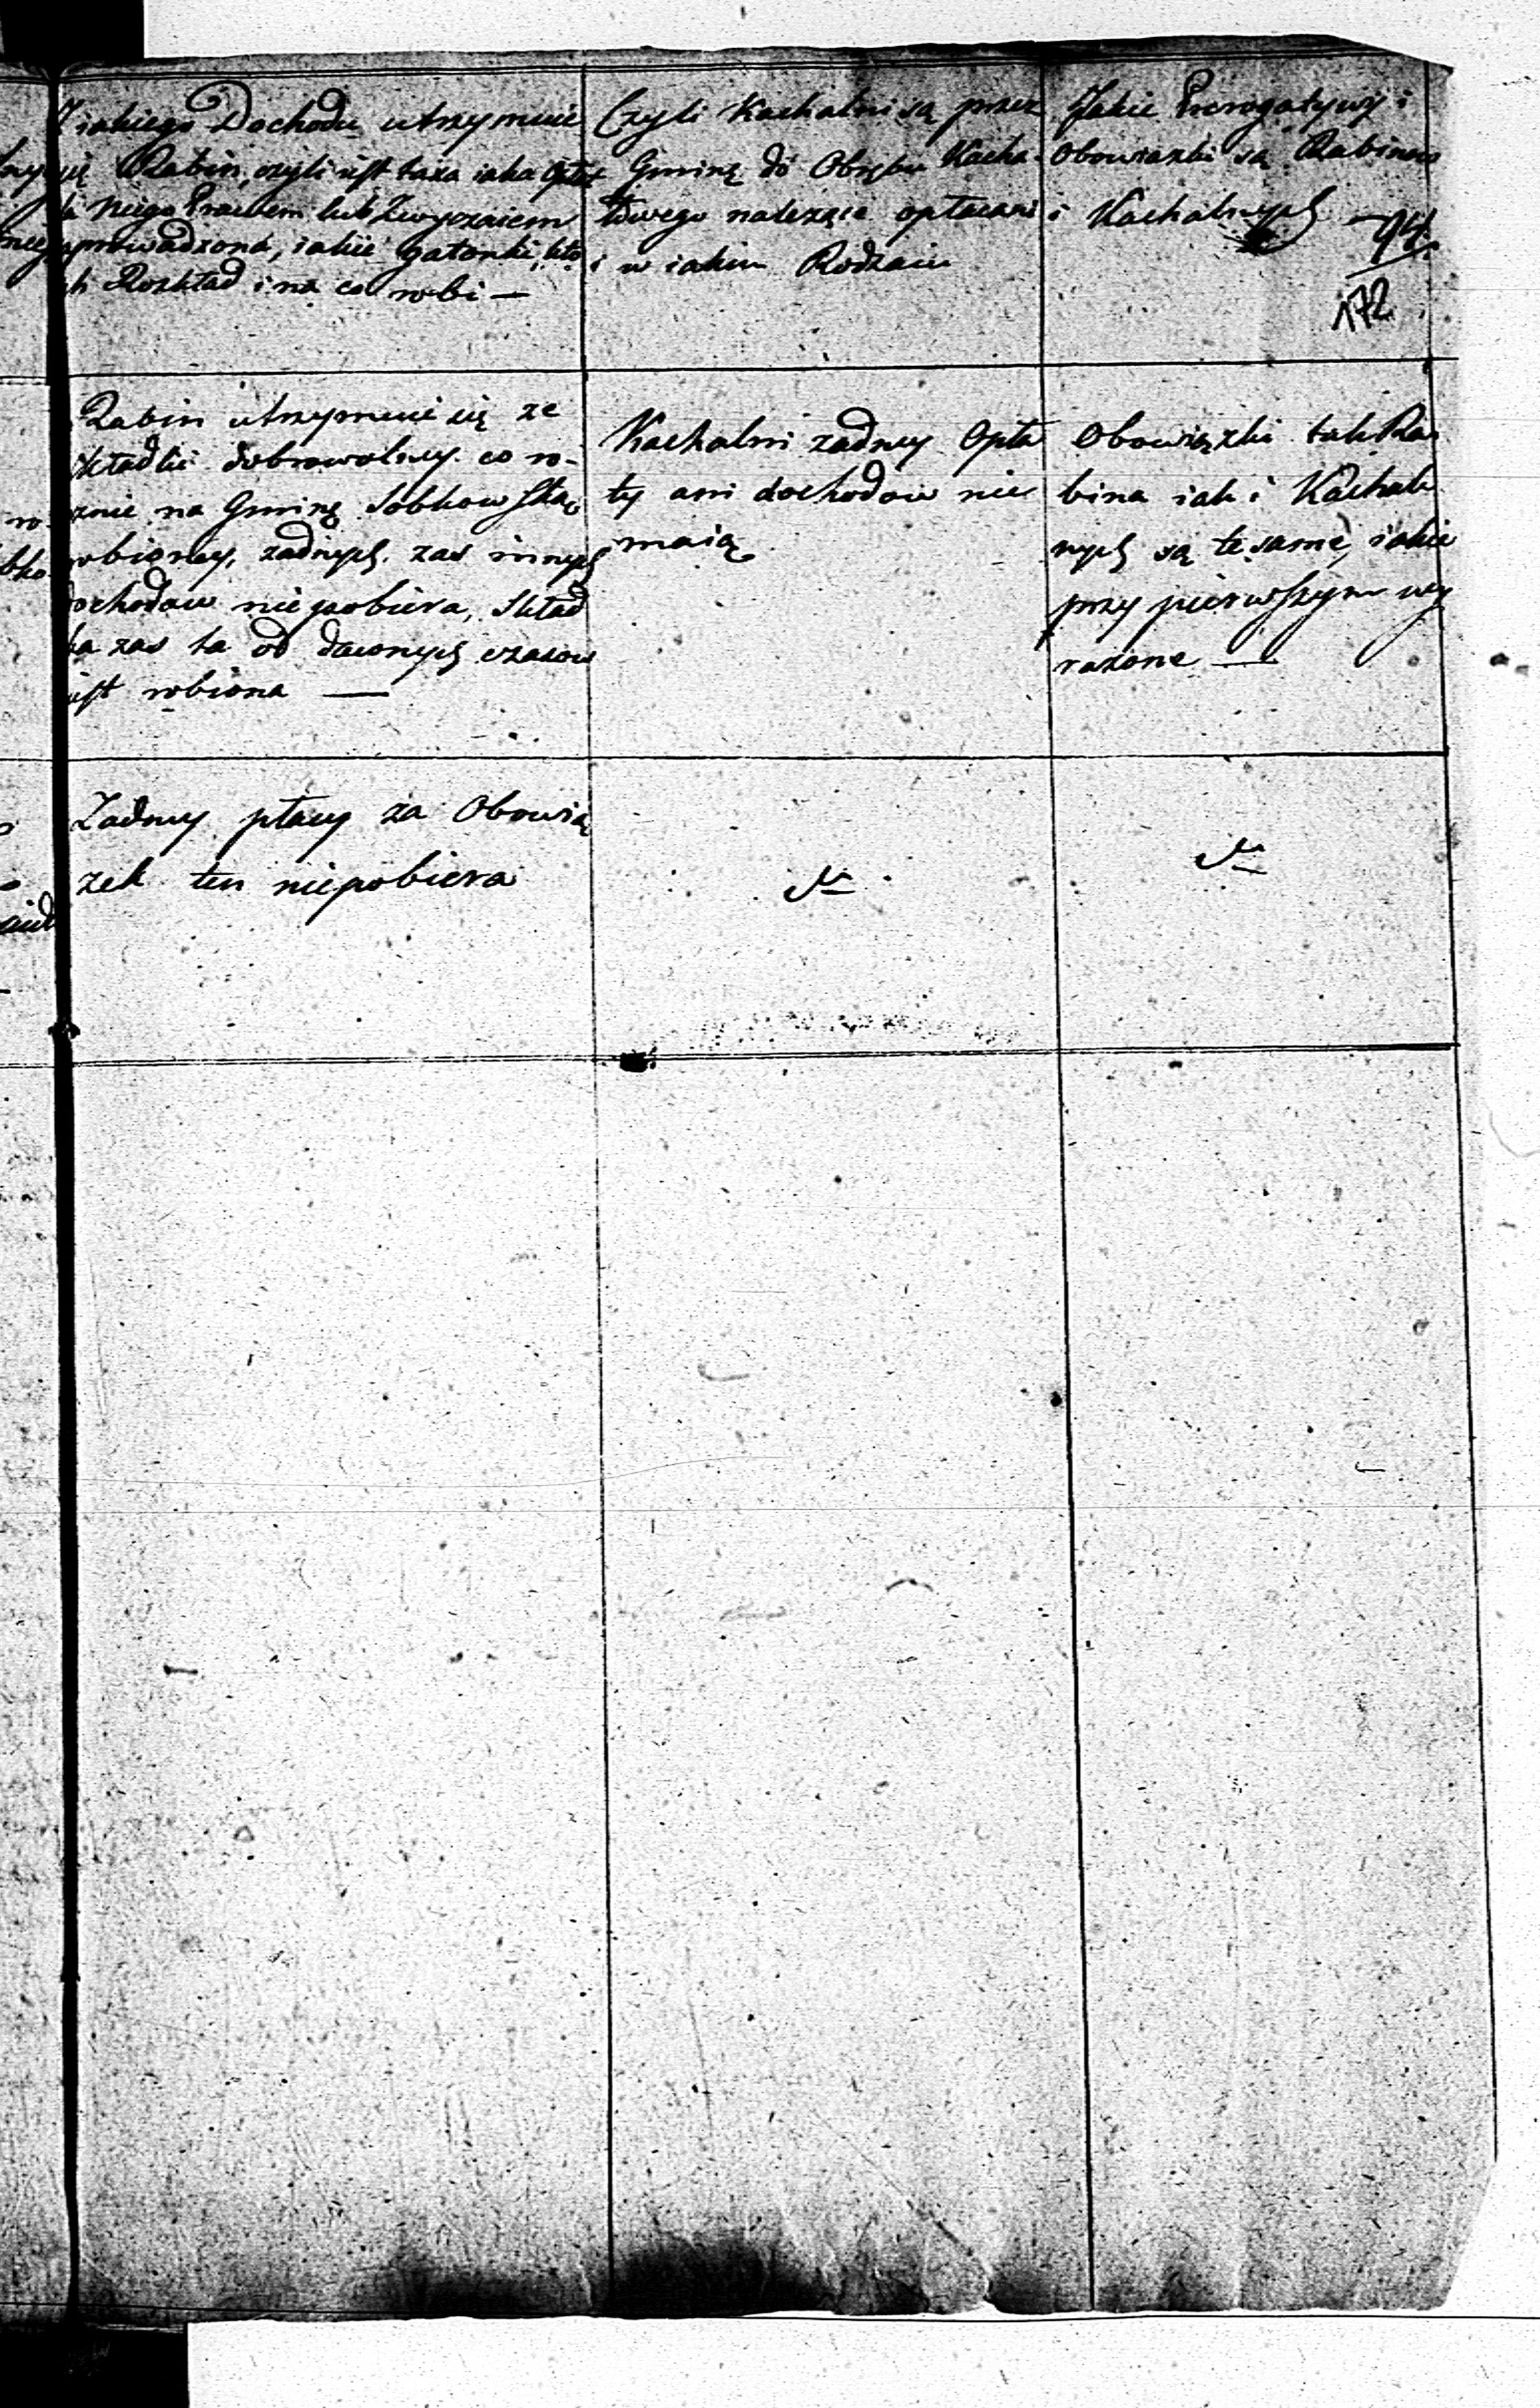 Z iakiego Dochodu utrzymuie
się Rabin, czyli iest taxa iaka Opłat
dla niego Prawem lub Zwyczaiem
wprowadzona, iakie gatonki, kto
ich Rozkład i na co robi —
Czyli Kachalni są przez
Gminę do Obrębu Kacha-
łowego należące opłacani
i w iakim Rodzaiu
Jakie Prerogatywy i
Obowiązki są Rabinow
i Kachalnych
94
172
Rabin utrzymuie się ze
składki dobrowolney co ro-
cznie na Gminę Sobkowską
robioney, żadnych zas innych
dochodow niepobiera, Skład
ka zas ta od dawnych czasow
iest robiona —
Kachalni zadney Opła
ty ani dochodow nie
maią
Obowiązki tak Ra
bina iak i Kachal
nych są te same, iakie
przy pierwszym wy
rażone —
Zadney płacy za Obowią
zek ten niepobiera